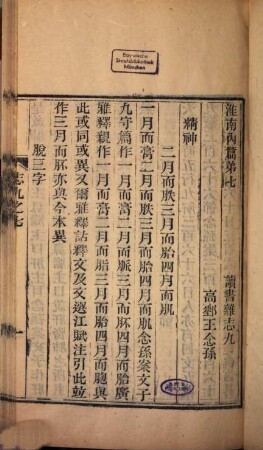 淮南內篇第七　讀書雜志九
高郵王念孫
精神
二月而胅三月而胎四月而肌
一月而膏二月而胅三月而胎四月而肌念孫案文子
九守篇作一月而膏二月而脈三月而胚四月而胎廣
雅釋親作一月而膏二月而脂三月而胎四月而胞與
此或同或異又爾雅釋詁釋文及文選江賦注引此竝
作三月而胚亦與今本異
脫三字
志九之七
一
Bayerische
Staatsbibliothek
München